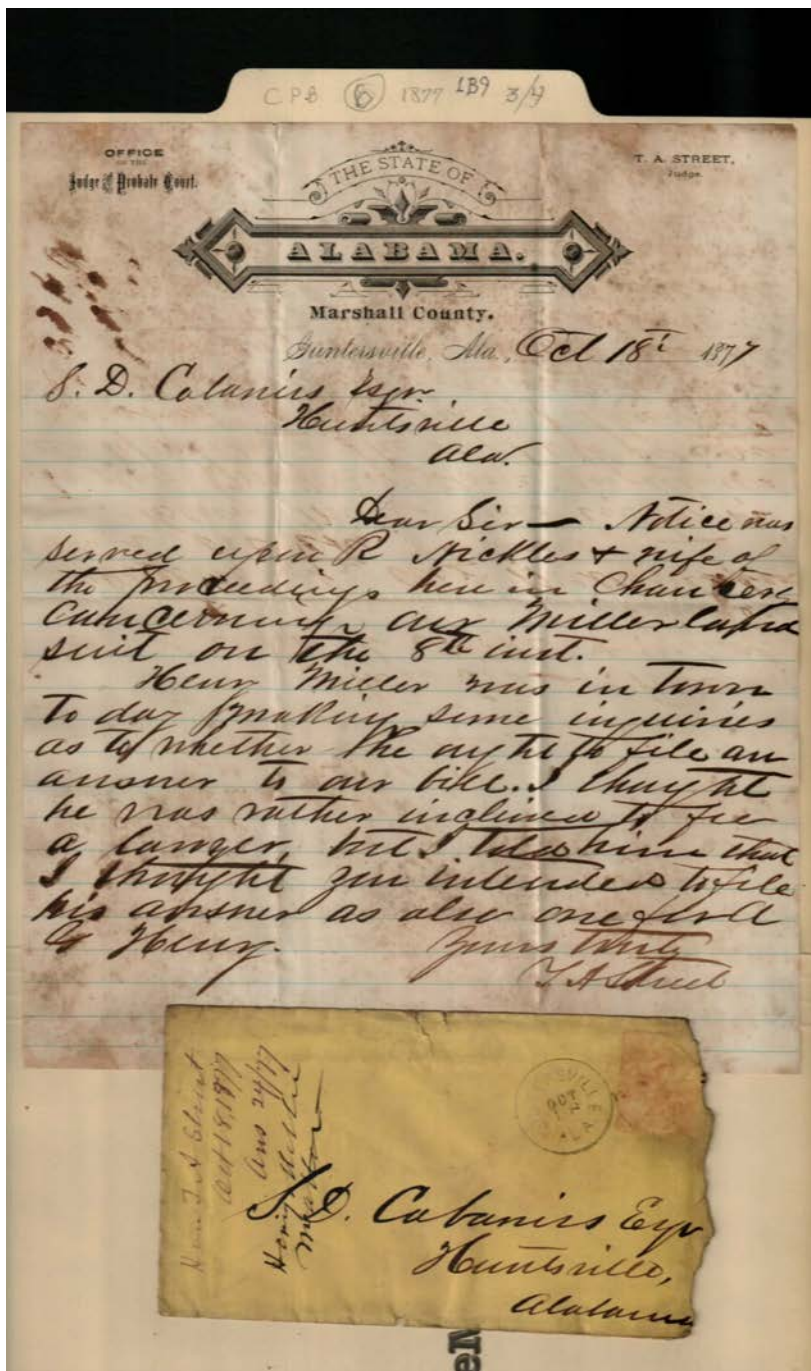 C P B 6 1877 LB9 3/4
OFFICE
OF THE
Judge of Probate Court.
T. A. STREET,
Judge.
THE STATE OF
ALABAMA.
Marshall County.
Guntersville, Ala., Oct 18th 1877
S. D. Cabaniss Esqr.
Huntsville
Ala.
Dear Sir — Notice was
served upon R Nickles & wife of
the proceedings here in Chancery
concerning our Miller land
suit on the 8th inst.
Henry Miller was in town
to day making some inquiries
as to whether he ought to file an
answer to our bill. I thought
he was rather inclined to fee
a lawyer, but I told him that
I thought you intended to file
his answer as also one for
G Henry.
Yours truly
T A Street
Hon T A Street
Oct 18, 1877
Ans 24/77
OCT
ALA
S. D. Cabaniss Esqr
Huntsville,
Alabama